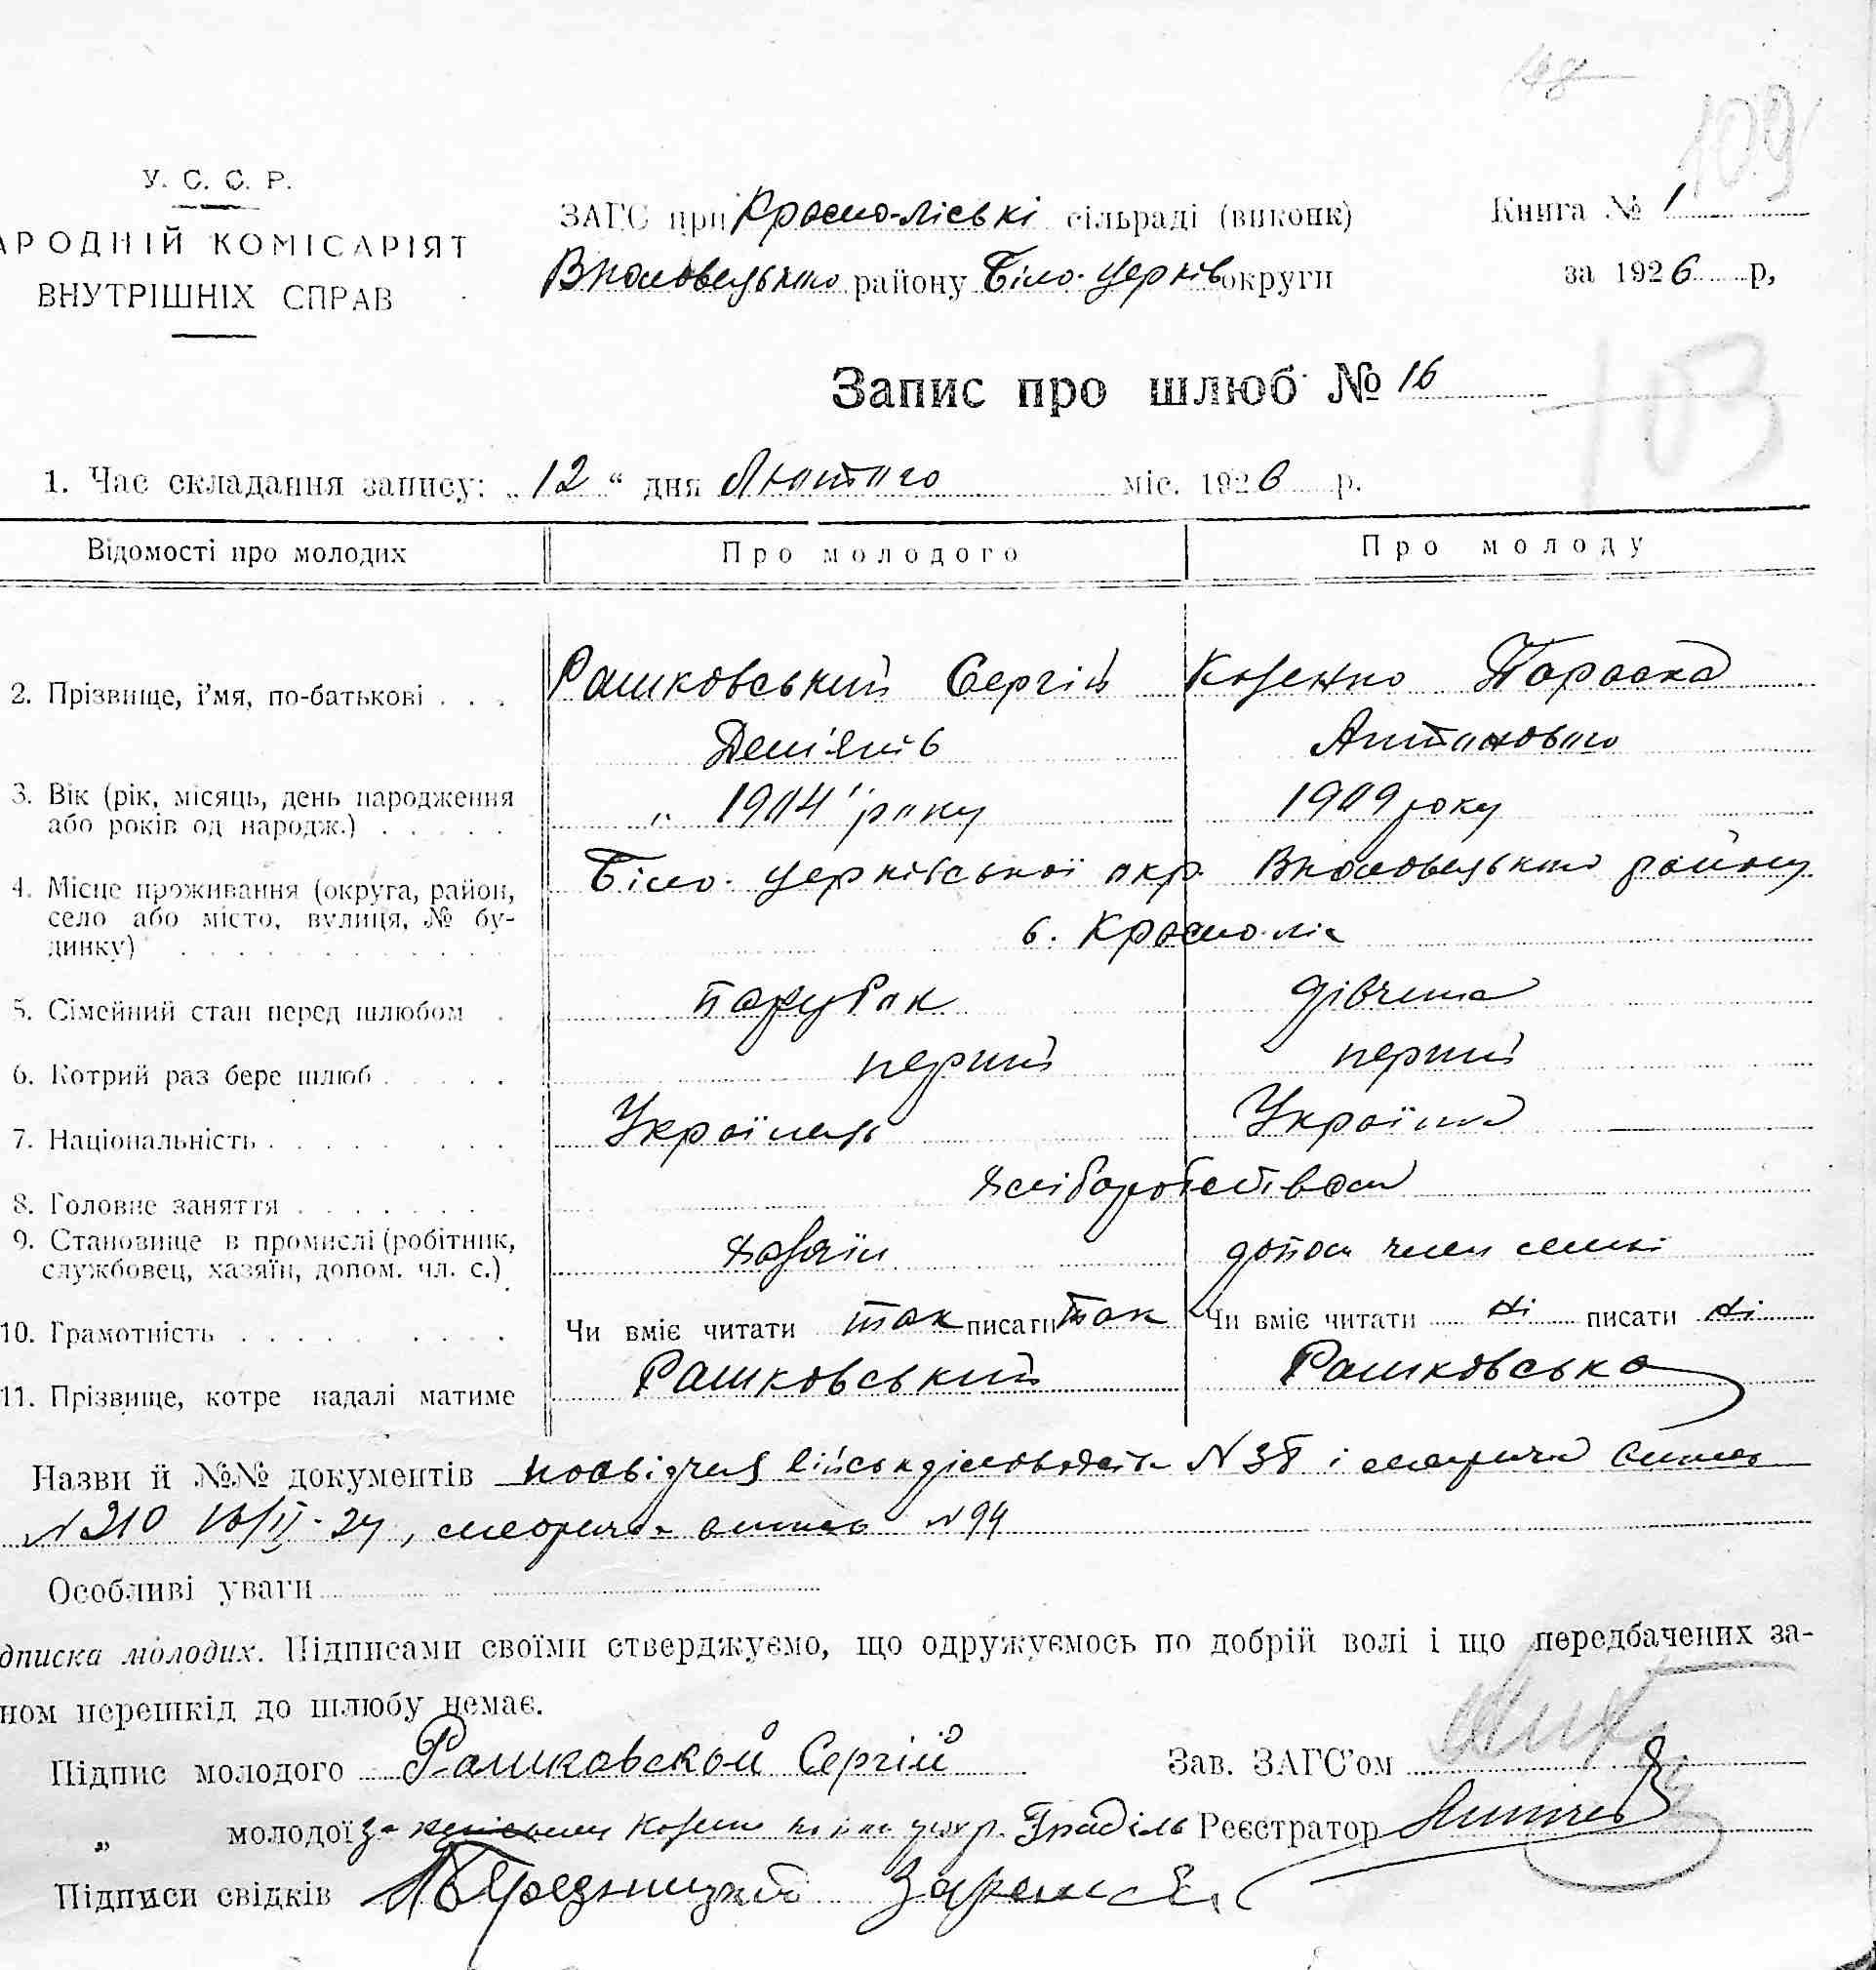 109
У. С. С. Р.
АРОДНІЙ КОМІСАРІЯТ
ВНУТРІШНІХ СПРАВ
ЗАГС при Красно-ліські сільраді (виконк)
району Біло-Церків округи
Книга № 1
за 1926 р,
103
Запис про шлюб № 16
1. Час складання запису: „12“ дня Лютого міс. 1926 р.
Відомості про молодих Про молодого Про молоду
2. Прізвище, і'мя, по-батькові . . . Рашковський Сергій Параска
Дем'янів Антоновна
3. Вік (рік, місяць, день народження
або років од народж.) . . . . . „ 1904 " року 1909 року
4. Місце проживання (округа, район,
село або місто, вулиця, № бу-
динку) . . . . . . . . . . . .
Біло-церківської окр. району
с. Красноліс
5. Сімейний стан перед шлюбом . парубок дівчина
6. Котрий раз бере шлюб . . . . . перший перший
7. Національність . . . . . . . . Українець Українка
8. Головне заняття . . . . . . . хліборобством
9. Становище в промислі (робітник,
службовец, хазяїн, допом. чл. с.) хазяїн допом член семьі
10. Грамотність . . . . . . . . . Чи вміє читати так писати так Чи вміє читати ні писати ні
11. Прізвище, котре надалі матиме Рашковський Рашковська
Назви й №№ документів посвідчен N 38 і метрична випись
N 210 , метрична випись N 94
Особливі уваги
дписка молодих. Підписами своїми стверджуємо, що одружуємось по добрій волі і що передбачених за-
ном перешкід до шлюбу немає.
Підпис молодого Рашковской Сергій Зав. ЗАГС'ом
„ молодої за Реєстратор
Підписи свідків